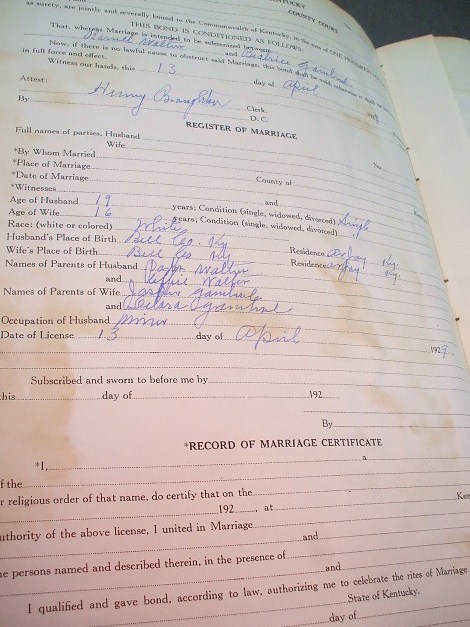 KENTUCKY
COUNTY COURT
as surety, are jointly and severally bound to the Commonwealth of Kentucky, in the sum of ONE HUNDRED
THIS BOND IS CONDITIONED AS FOLLOWS:
That, whereas Marriage is intended to be solemnized between
Walton and Beatrice
Now, if there is no lawful cause to obstruct said Marriage, this bond shall be void, otherwise it shall
in full force and effect.
Witness our hands, this 13 day of April
Attest:
Henry Broughton Clerk.
By D. C.
REGISTER OF MARRIAGE
Full names of parties, Husband
Wife
*By Whom Married
*Place of Marriage
*Date of Marriage County of
*Witnesses and
Age of Husband 19 years; Condition (single, widowed, divorced) Single
Age of Wife 16 years; Condition (single, widowed, divorced)
Race: (white or colored) White
Husband's Place of Birth Bell Co. Ky Residence Arjay Ky.
Wife's Place of Birth Bell Co Ky Residence Arjay Ky.
Names of Parents of Husband Walton
and Walton
Names of Parents of Wife
and
Occupation of Husband Miner
Date of License 13 day of April 1929
Subscribed and sworn to before me by
this day of 192
By
*RECORD OF MARRIAGE CERTIFICATE
*I, a
f the
r religious order of that name, do certify that on the
192 , at Ken
uthority of the above license, I united in Marriage
and
e persons named and described therein, in the presence of
and
I qualified and gave bond, according to law, authorizing me to celebrate the rites of Marriage
State of Kentucky.
day of